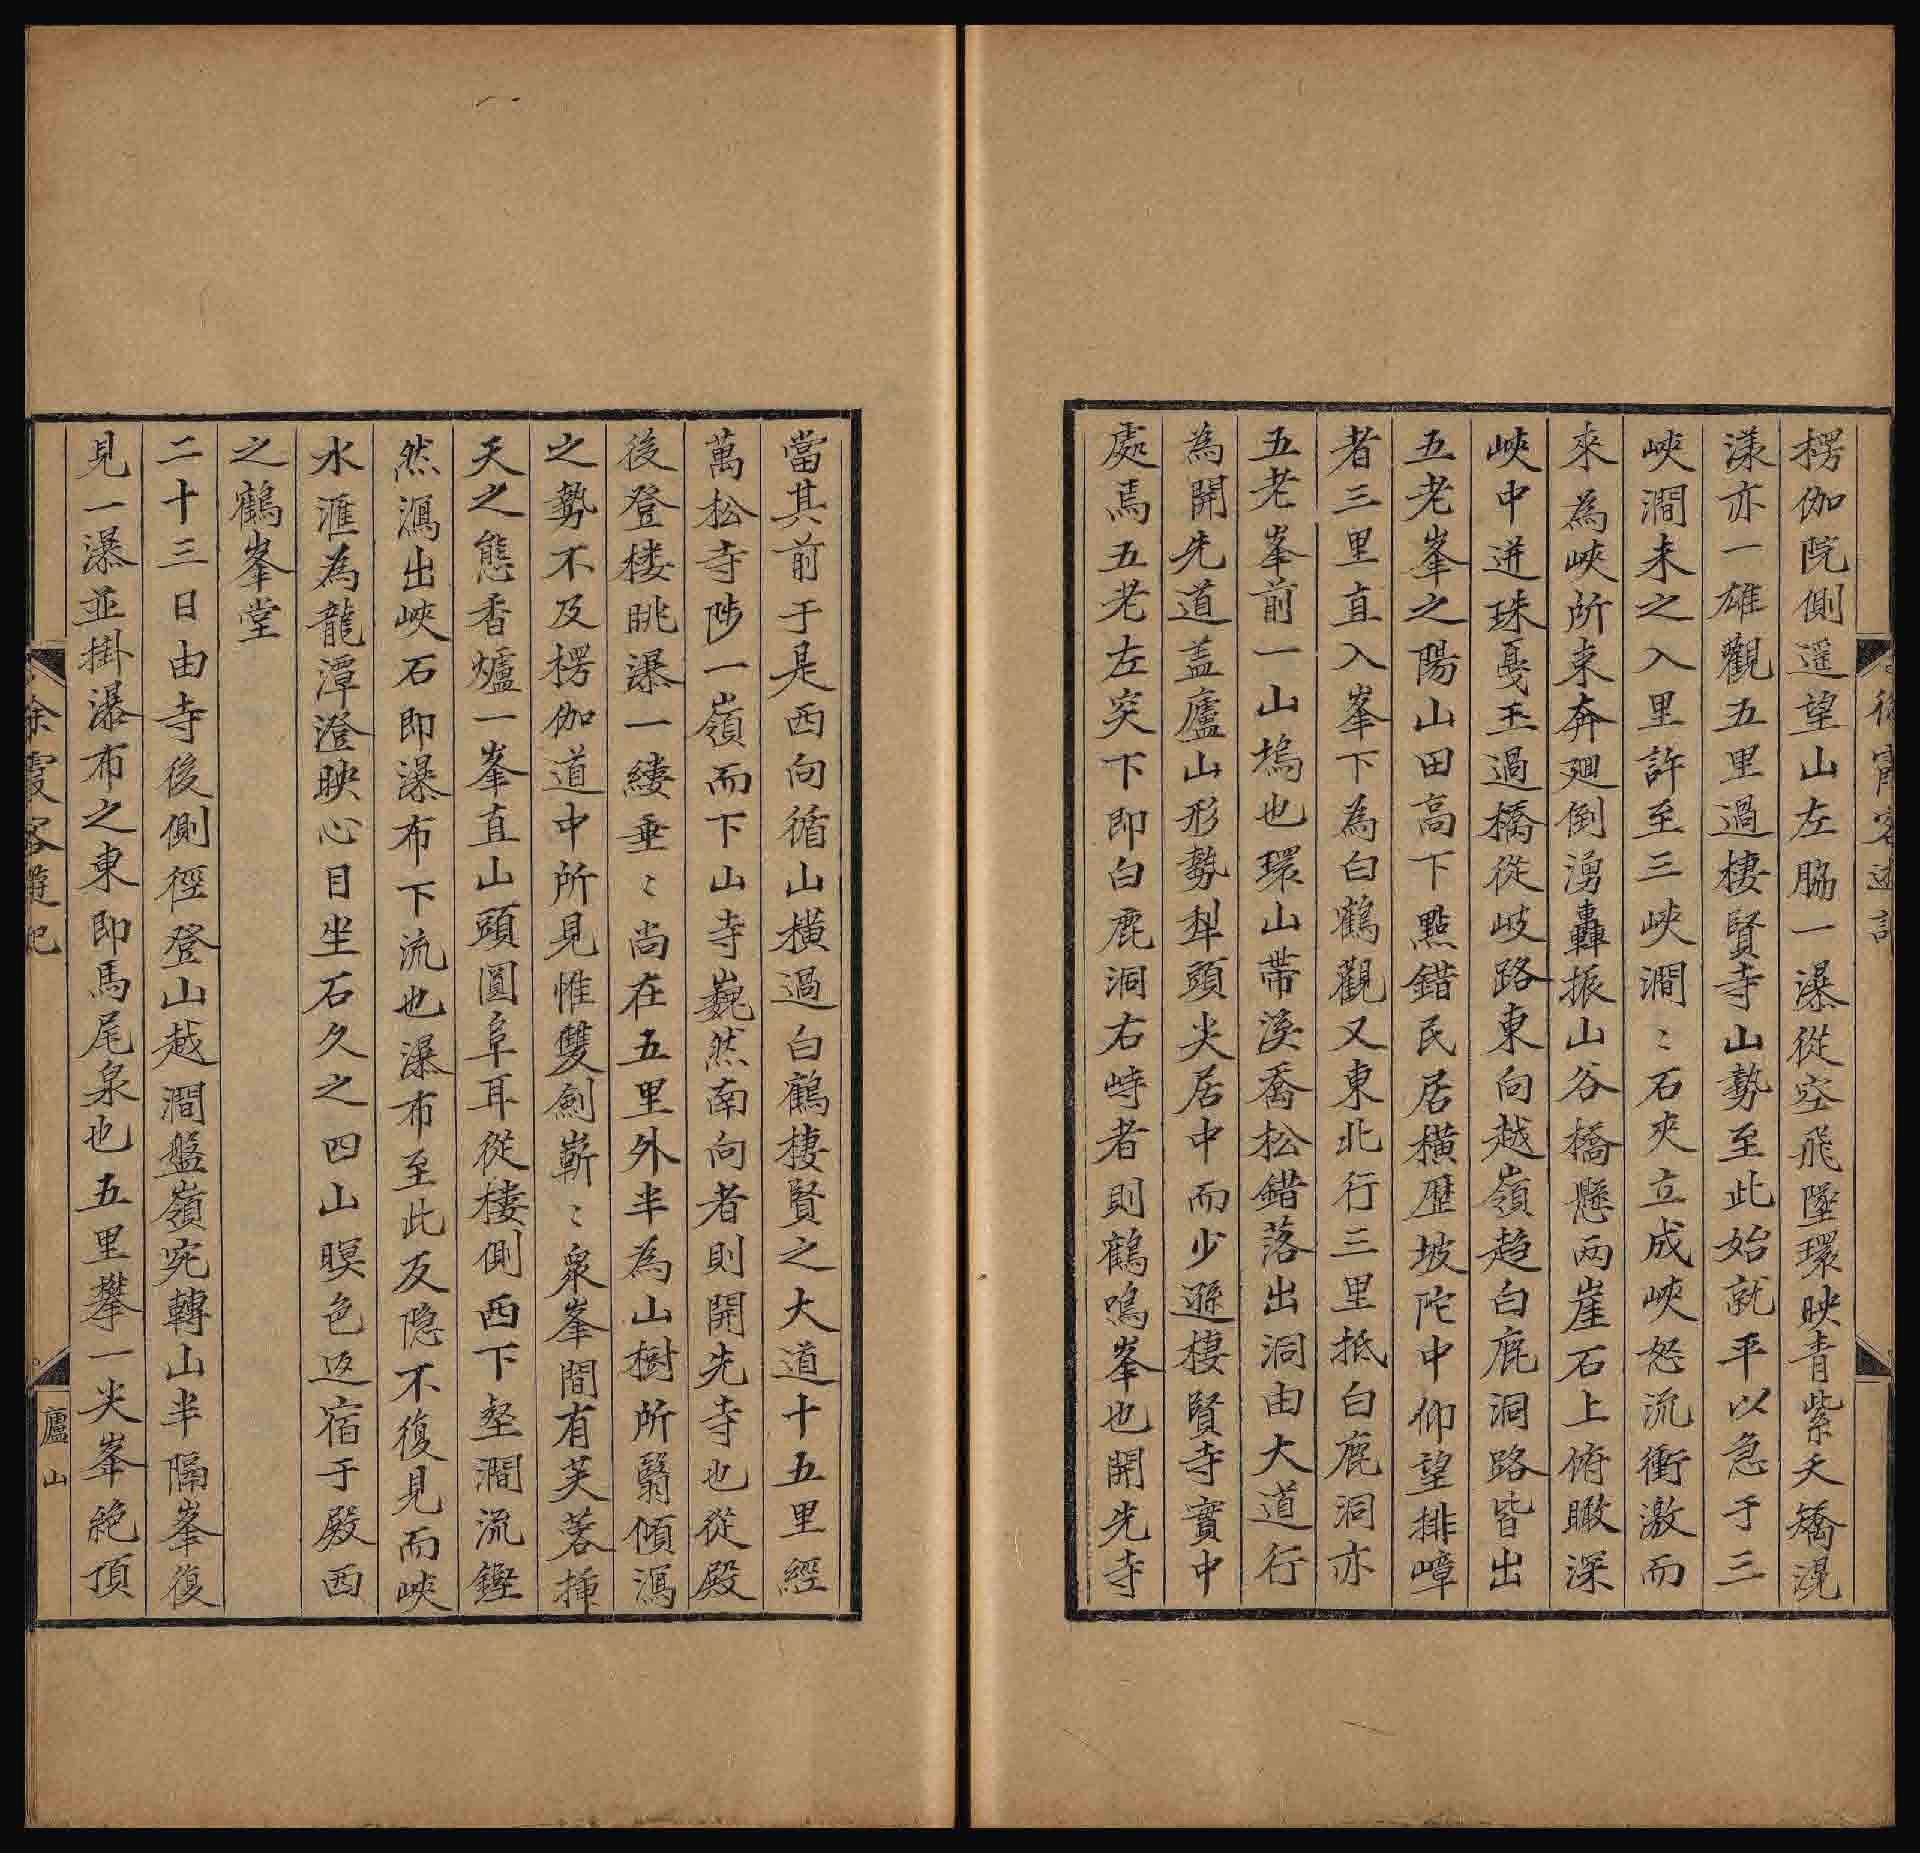 楞伽院側遥望山左脇一瀑從空飛墜環映青紫夭矯滉
漾亦一雄觀五里過棲賢寺山勢至此始就平以急于三
峽澗未之入里許至三峽澗〻石夾立成峽怒流衝激而
來為峽所束奔廻倒湧轟振山谷橋懸兩崖石上俯瞰深
峽中迸珠戛玉過橋從岐路東向越嶺趋白鹿洞路皆出
五老峯之陽山田高下點錯民居横歷坡陀中仰望排嶂
者三里直入峯下為白鶴觀又東北行三里抵白鹿洞亦
五老峯前一山塢也環山帶溪喬松錯落出洞由大道行
為開先道盖廬山形勢犁頭尖居中而少遜棲賢寺實中
處焉五老左突下即白鹿洞右峙者則鶴鳴峯也開先寺
當其前于是西向循山橫過白鶴棲賢之大道十五里經
萬松寺陟一嶺而下山寺巍然南向者則開先寺也從殿
後登楼眺瀑一縷垂〻尚在五里外半為山樹所翳傾瀉
之勢不及楞伽道中所見惟雙劍嶄〻衆峯間有芙蓉揷
天之態香爐一峯直山頭圓阜耳從樓側西下壑澗流鏗
然瀉出峽石即瀑布下流也瀑布至此反隐不復見而峽
水滙為龍潭澄映心目坐石久之四山暝色返宿于殿西
之鶴峯堂
二十三日由寺後側徑登山越澗盤嶺宛轉山半隔峯復
見一瀑並掛瀑布之東即馬尾泉也五里攀一尖峯絶頂
徐霞客遊記
廬山